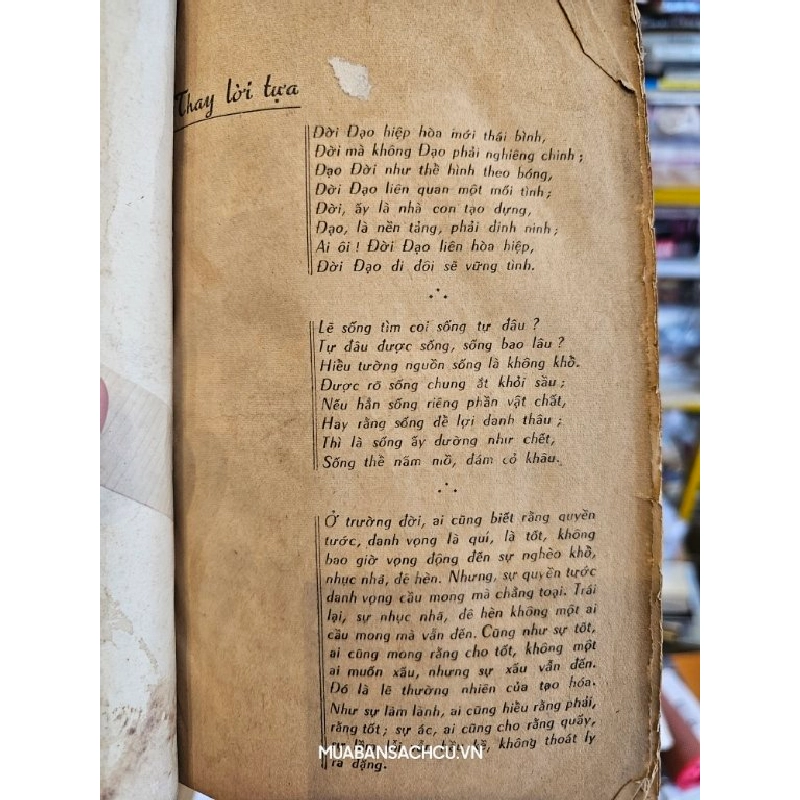 Thay lời tựa
Đời Đạo hiệp hòa mới thái bình,
Đời mà không Đạo phải nghiêng chinh;
Đạo Đời như thể hình theo bóng,
Đời Đạo liên quan một mối tình;
Đời, ấy là nhà con tạo dựng,
Đạo, là nền tảng, phải dinh ninh;
Ai ôi! Đời Đạo liên hòa hiệp,
Đời Đạo đi đôi sẽ vững tình.
Lẽ sống tìm coi sống tự đâu?
Tự đâu được sống, sống bao lâu?
Hiểu tường nguồn sống là không khổ.
Được rõ sống chung ắt khỏi sầu;
Nếu hẳn sống riêng phần vật chất,
Hay rằng sống để lợi danh thâu;
Thì là sống ấy dường như chết,
Sống thế nấm mồ, đám cỏ khâu.
Ở trường đời, ai cũng biết rằng quyền
tước, danh vọng là quí, là tốt, không
bao giờ vọng động đến sự nghèo khổ,
nhục nhã, đê hèn. Nhưng, sự quyền tước
danh vọng cầu mong mà chẳng toại. Trái
lại, sự nhục nhã, đê hèn không một ai
cầu mong mà vẫn đến. Cũng như sự tốt,
ai cũng mong rằng cho tốt, không một
ai muốn xấu, nhưng sự xấu vẫn đến.
Đó là lẽ thường nhiên của tạo hóa.
Như sự lầm lành, ai cũng hiểu rằng phải,
rằng tốt; sự ác, ai cũng cho rằng quấy,
không thoát ly
ra đặng.
MUABANSACHCU.VN